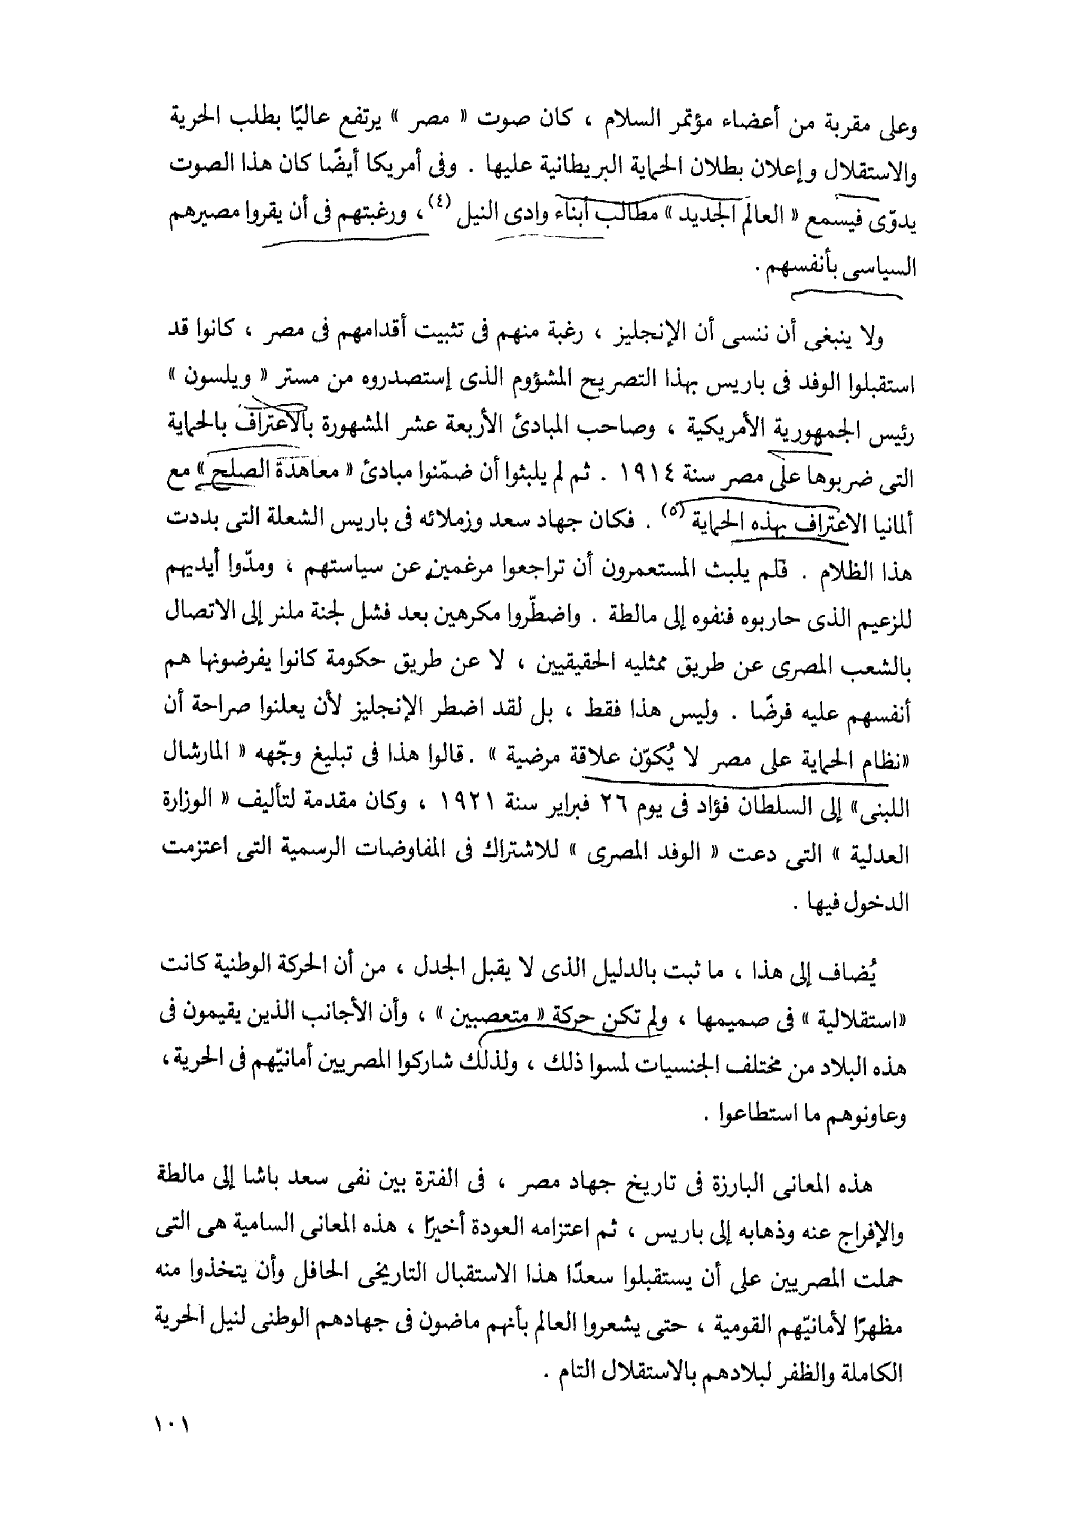 وعلى مقربة من أعضاء مؤتمر السلام ، كان صوت « مصر » يرتفع عاليًا بطلب الحرية
والاستقلال وإعلان بطلان الحماية البريطانية عليها . وفى أمريكا أيضًا كان هذا الصوت
يدوّى فيسمع « العالم الجديد » مطالب أبناء وادى النيل (٤) ، ورغبتهم فى أن يقروا مصيرهم
السياسى بأنفسهم .
ولا ينبغى أن ننسى أن الإنجليز ، رغبة منهم فى تثبيت أقدامهم فى مصر ، كانوا قد
استقبلوا الوفد فى باريس بهذا التصريح المشؤوم الذى إستصدروه من مستر « ويلسون »
رئيس الجمهورية الأمريكية ، وصاحب المبادئ الأربعة عشر المشهورة بالاعتراف بالحماية
التى ضربوها على مصر سنة ١٩١٤ . ثم لم يلبثوا أن ضمّنوا مبادئ « معاهدة الصلح » مع
ألمانيا الاعتراف بهذه الحماية (٥) . فكان جهاد سعد وزملائه فى باريس الشعلة التى بددت
هذا الظلام . فلم يلبث المستعمرون أن تراجعوا مرغمين عن سياستهم ، ومدّوا أيديهم
للزعيم الذى حاربوه فنفوه إلى مالطة . واضطّروا مكرهين بعد فشل لجنة ملنر إلى الاتصال
بالشعب المصرى عن طريق ممثليه الحقيقيين ، لا عن طريق حكومة كانوا يفرضونها هم
أنفسهم عليه فرضًا . وليس هذا فقط ، بل لقد اضطر الإنجليز لأن يعلنوا صراحة أن
«نظام الحماية على مصر لا يُكوّن علاقة مرضية » . قالوا هذا فى تبليغ وجّهه « المارشال
اللبنى» إلى السلطان فؤاد فى يوم ٢٦ فبراير سنة ١٩٢١ ، وكان مقدمة لتأليف « الوزارة
العدلية » التى دعت « الوفد المصرى » للاشتراك فى المفاوضات الرسمية التى اعتزمت
الدخول فيها .
يُضاف إلى هذا ، ما ثبت بالدليل الذى لا يقبل الجدل ، من أن الحركة الوطنية كانت
«استقلالية » فى صميمها ، ولم تكن حركة « متعصبين » ، وأن الأجانب الذين يقيمون فى
هذه البلاد من مختلف الجنسيات لمسوا ذلك ، ولذلك شاركوا المصريين أمانيّهم فى الحرية ،
وعاونوهم ما استطاعوا .
هذه المعانى البارزة فى تاريخ جهاد مصر ، فى الفترة بين نفى سعد باشا إلى مالطة
والإفراج عنه وذهابه إلى باريس ، ثم اعتزامه العودة أخيرًا ، هذه المعانى السامية هى التى
حملت المصريين على أن يستقبلوا سعدًا هذا الاستقبال التاريخى الحافل وأن يتخذوا منه
مظهرًا لأمانيّهم القومية ، حتى يشعروا العالم بأنهم ماضون فى جهادهم الوطنى لنيل الحرية
الكاملة والظفر لبلادهم بالاستقلال التام .
١٠١